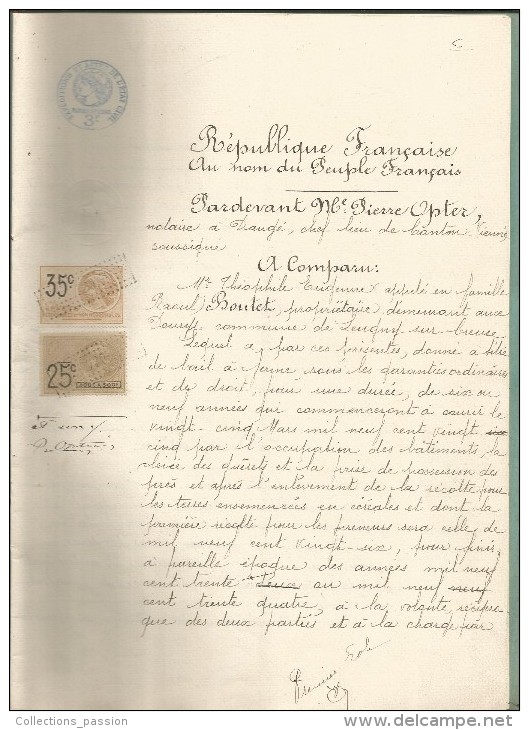 République Française
Au nom du Peuple Français
Pardevant Me Pierre Opter,
notaire à Dangé, chef lieu de Canton Vienne
soussigné
A Comparu:
Mr Théophile Eugène appelé en famille
Raoul Boutet, propriétaire, demeurant aux
commune de Leugny sur Creuse
Lequel a, par ces présentes, donné à titre
de bail à ferme, sous les garanties ordinaires
et de droit, pour une durée, de six ou
neuf années qui commenceront à courir le
vingt-cinq Mars mil neuf cent vingt six
cinq par l'occupation des bâtiments, la
des guérets et la prise de possession des
près et après l'enlèvement de la récolte pour
les terres ensemencées en céréales et dont la
première récolte pour les preneurs sera celle de
mil neuf cent vingt-six, pour finir
à pareille époque des années mil neuf
cent trente au mil neuf neuf
cent trente quatre, à la volonté récipro-
que des deux parties et à la charge par
35c
25c
3F
Premier Rôle
Collections_passion
www.delcampe.net